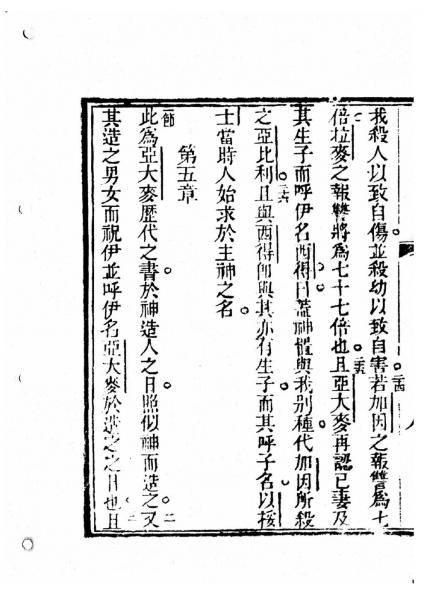 我殺人以致自傷並殺幼以致自害若加因之報讐為十
二四
倍拉麥之報讐將為七十七倍也且亞大麥再認己妻及
二五
其生子而呼伊名西得曰蓋神擢與我別種代加因所殺
之亞比利且與西得卽與其亦有生子而其呼子名以挼
二六
士當時人始求於主神之名
第五章
一節
此為亞大麥歷代之書於神造人之日照似神而造之又
二
其造之男女而祝伊並呼伊名亞大麥於造之之日也且
三